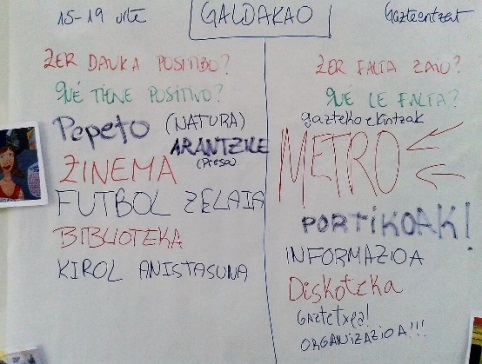 15-19 urte
GALDAKAO
Gazteentzat
ZER DAUKA POSITIBO?
QUÉ TIENE POSITIVO?
Pepeto (NATURA)
ARANTZILE
(Presa)
ZINEMA
FUTBOL ZELAIA
BIBLIOTEKA
KIROL ANISTASUNA
ZER FALTA ZAIO?
QUÉ LE FALTA?
gazteko ekintzak
METRO
PORTIKOAK!
INFORMAZIOA
DISKOTEKA
Gaztetxea!
ORGANIZAZIOA!!!